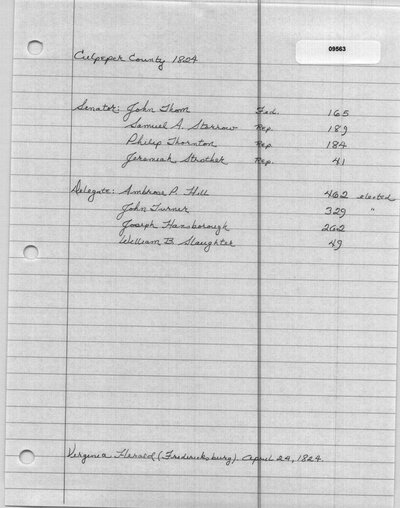 09563
Culpeper County 1824
Senator: John Thom Fed. 165
Samuel A. Storrow Rep. 189
Philip Thornton Rep. 184
Jeremiah Strother Rep. 41
Delegate: Ambrose P. Hill 462 elected
John Turner 329 "
Joseph Hansborough 262
William B. Slaughter 49
Virginia Herald (Fredericksburg). April 24, 1824.